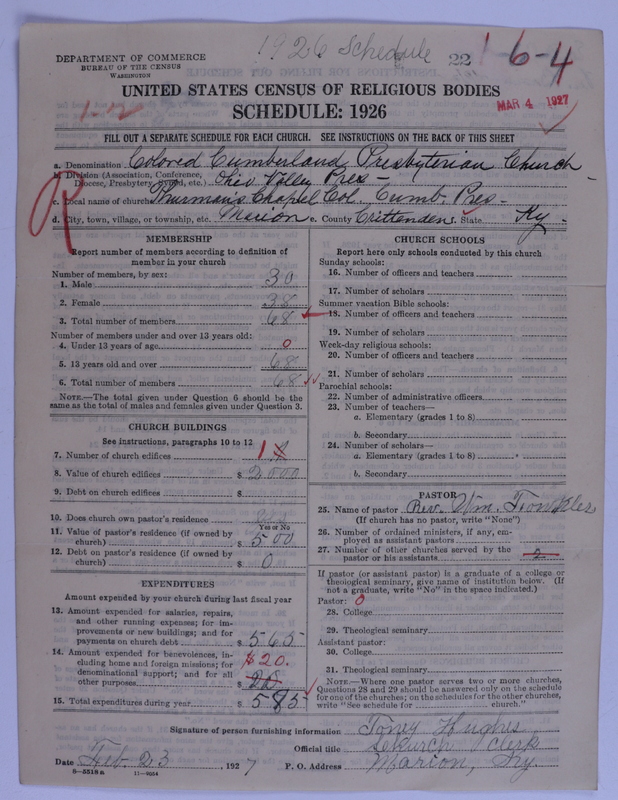 1926 Schedule 22 1-6-4
DEPARTMENT OF COMMERCE
BUREAU OF THE CENSUS
WASHINGTON
MAR 4 1927
1-12
UNITED STATES CENSUS OF RELIGIOUS BODIES
SCHEDULE: 1926
FILL OUT A SEPARATE SCHEDULE FOR EACH CHURCH. SEE INSTRUCTIONS ON THE BACK OF THIS SHEET
R
a. Denomination Colored Cumberland Presbyterian Church
b. Division (Association, Conference, Diocese, Presbytery, Synod, etc.) Ohio Valley Pres-
c. Local name of church Thurman's Chapel Col. Cumb. Pres-
d. City, town, village, or township, etc. Marion e. County Crittenden f. State Ky-
MEMBERSHIP
Report number of members according to definition of
member in your church
Number of members, by sex:
1. Male 30
2. Female 38
3. Total number of members 68
Number of members under and over 13 years old:
4. Under 13 years of age 0
5. 13 years old and over 68
6. Total number of members 68
NOTE.—The total given under Question 6 should be
same as the total of males and females given under Question 3.
CHURCH BUILDINGS
See instructions, paragraphs 10 to 12
7. Number of church edifices 1
8. Value of church edifices $ 2000
9. Debt on church edifices $
10. Does church own pastor's residence
Yes or No
11. Value of pastor's residence (if owned by
church) $ 500
12. Debt on pastor's residence (if owned by
church) $ 0
EXPENDITURES
Amount expended by your church during last fiscal year
13. Amount expended for salaries, repairs,
and other running expenses; for im-
provements or new buildings; and for
payments on church debt $ 565
14. Amount expended for benevolences, in-
cluding home and foreign missions; for
denominational support; and for all
other purposes $ $20.
15. Total expenditures during year $ 585
CHURCH SCHOOLS
Report here only schools conducted by this church
Sunday schools:
16. Number of officers and teachers
17. Number of scholars
Summer vacation Bible schools:
18. Number of officers and teachers
19. Number of scholars
Week-day religious schools:
20. Number of officers and teachers
21. Number of scholars
Parochial schools:
22. Number of administrative officers
23. Number of teachers—
a. Elementary (grades 1 to 8)
b. Secondary
24. Number of scholars—
a. Elementary (grades 1 to 8)
b. Secondary
PASTOR
25. Name of pastor Rev. Wm.
(If church has no pastor, write "None")
26. Number of ordained ministers, if any, em-
ployed as assistant pastors
27. Number of other churches served by the
pastor or his assistants 2
If pastor (or assistant pastor) is a graduate of a college or
theological seminary, give name of institution below. (If
not a graduate, write "No" in the space indicated.)
Pastor: 0
28. College
29. Theological seminary
Assistant pastor:
30. College
31. Theological seminary
NOTE.—Where one pastor serves two or more churches,
Questions 28 and 29 should be answered only on the schedule
for one of the churches; on the schedules for the other churches,
write "See schedule for church."
Signature of person furnishing information Toney Hughes
Official title Church Clerk
Date Feb 23, 1927 P. O. Address Marion, Ky.
8-5518a 11-9554